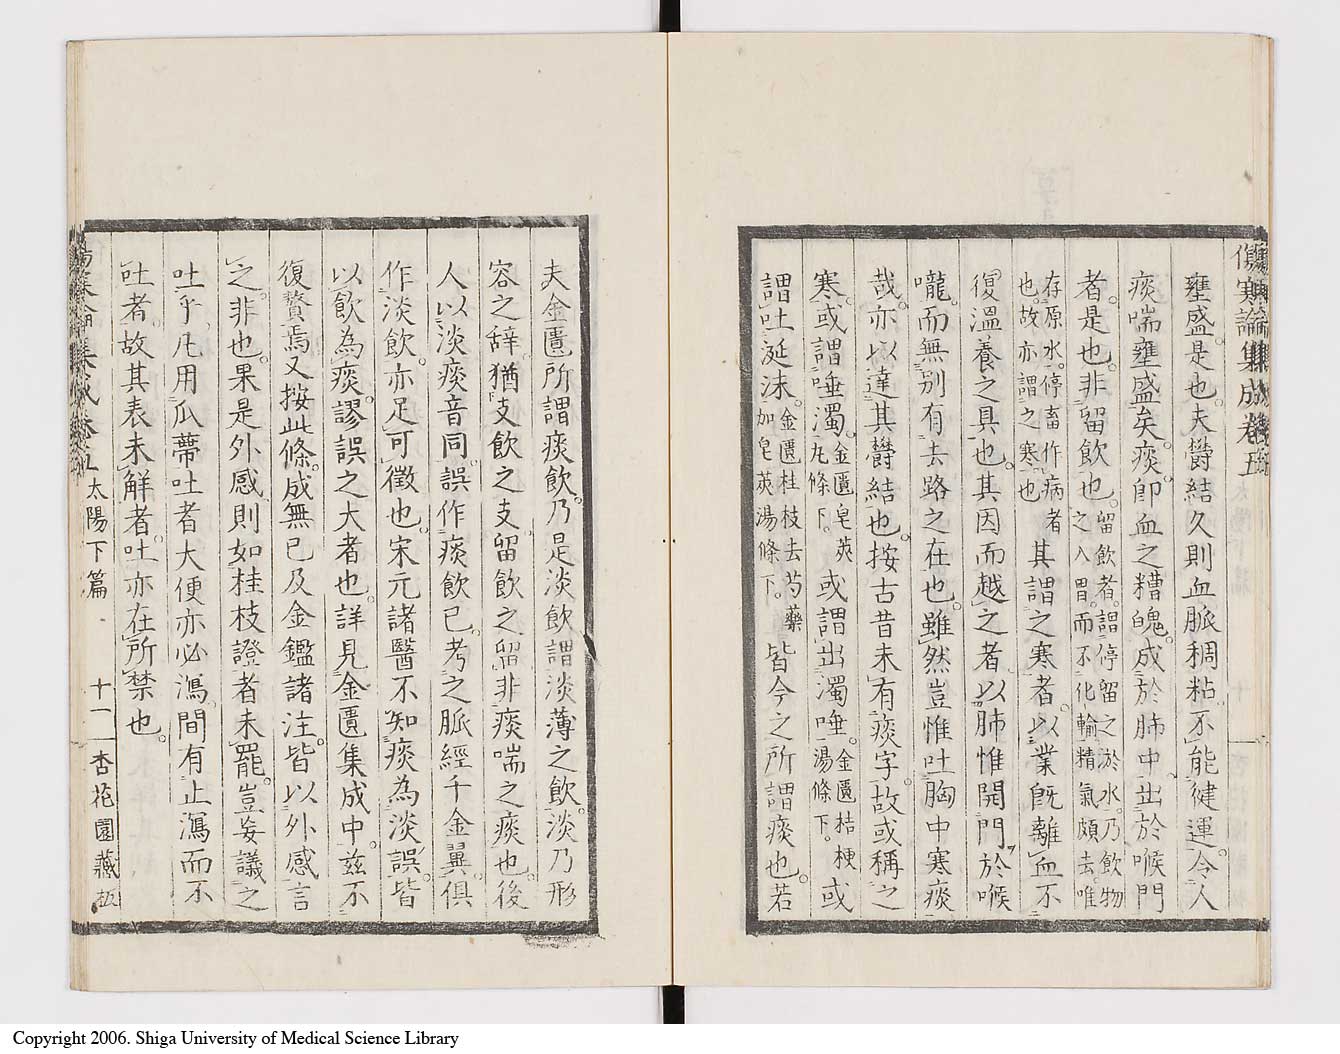 傷寒論集成卷五
壅盛。是也。夫欝結久則血脈稠粘。不能健運。令人
痰喘壅盛矣。痰卽血之糟魄。成於肺中。出於喉門
者。是也。非留飲也。留飲者。謂停留之於水。乃飲物之入胃。而不化輸精氣。頗去。唯
存原水。停畜作病者也。故亦謂之寒也其謂之寒者。以業既離血不
復溫養之具也。其因而越之者。以肺惟開門於喉
嚨。而無別有去路之在也。雖然豈惟吐胸中寒痰
哉。亦以達其欝結也。按古昔未有痰字。故或稱之
寒。或謂唾濁。金匱皂莢丸條下。或謂出濁唾。金匱桔梗湯條下。或
謂吐涎沫。金匱桂枝去芍藥加皂莢湯條下。皆今之所謂痰也。若
夫金匱所謂痰飲。乃是淡飲。謂淡薄之飲。淡乃形
容之辭。猶支飲之支。留飲之留。非痰喘之痰也。後
人以淡痰音同。誤作痰飲已。考之脈經千金翼。俱
作淡飲。亦足可徵也。宋元諸醫不知痰為淡誤。皆
以飲為痰。謬誤之大者也。詳見金匱集成中。茲不
復贅焉。又按此條。成無已及金鑑諸注。皆以外感言
之。非也。果是外感。則如桂枝證者未罷。豈妄議之
吐乎。凡用瓜蔕吐者。大便亦必瀉。間有止瀉而不
吐者。故其表未解者。吐亦在所禁也。
傷寒論集成卷五 太陽下篇 十一 杏花園藏板
Copyright 2006. Shiga University of Medical Science Library